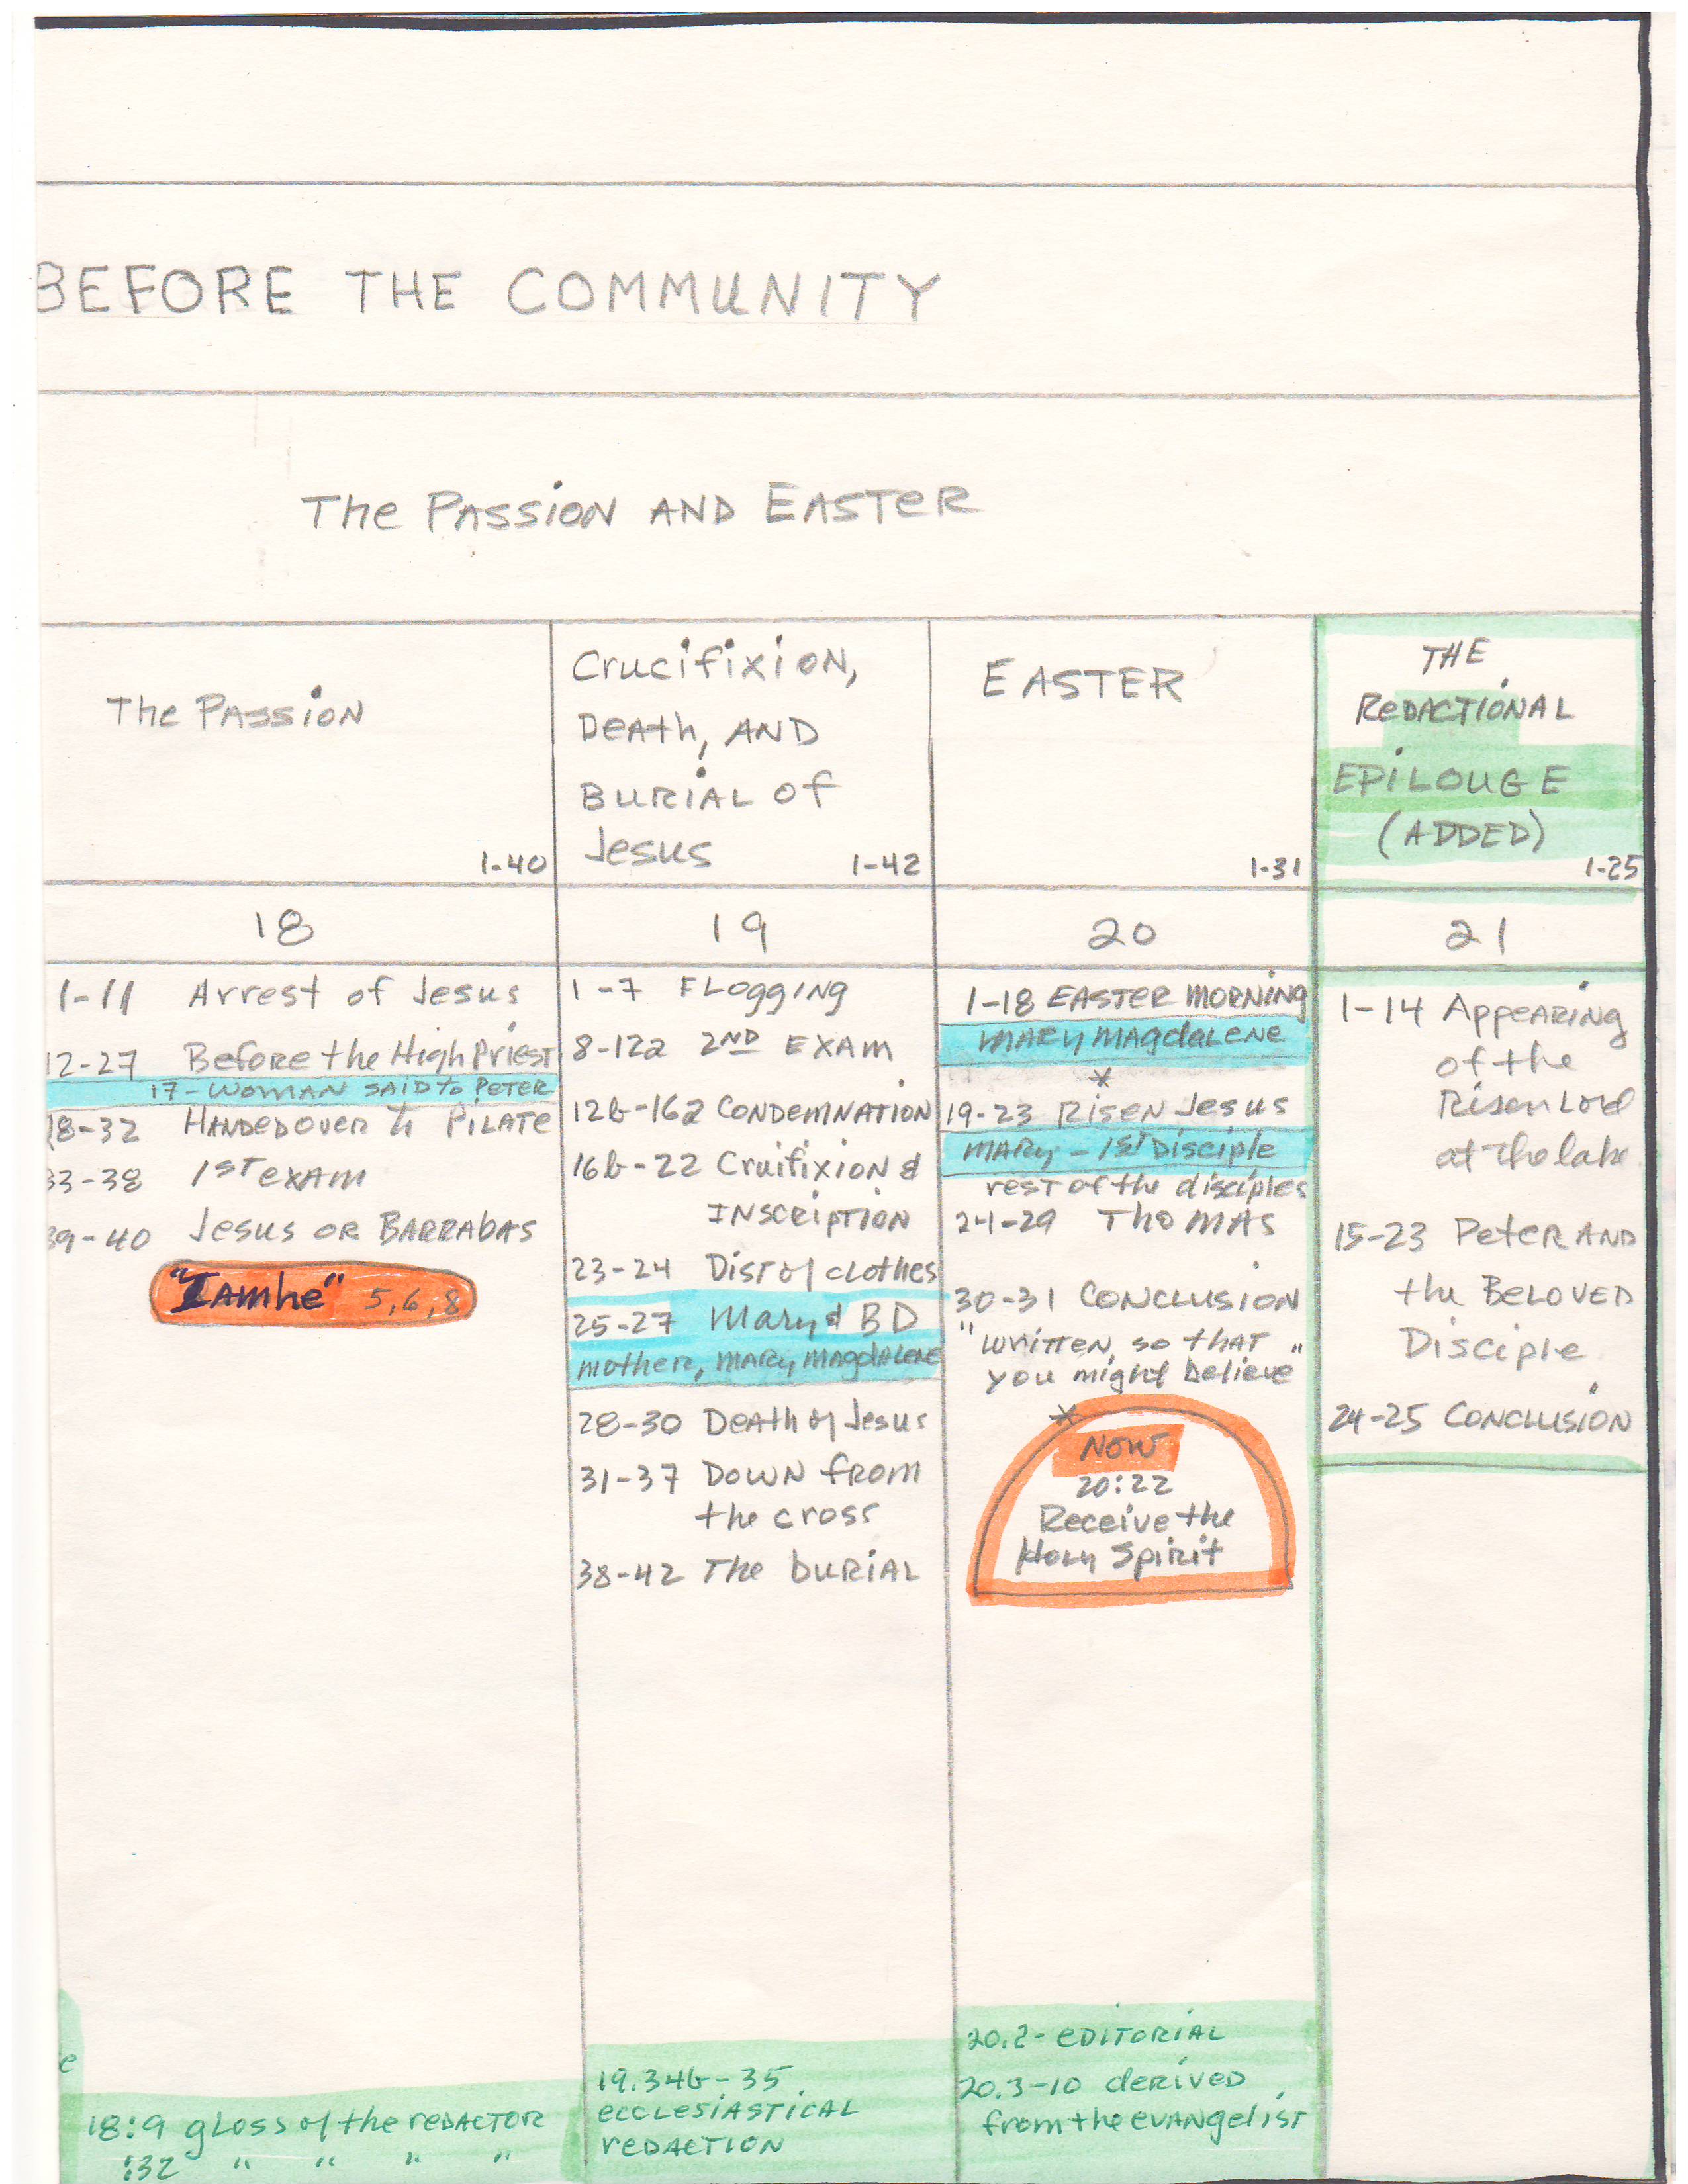 BEFORE THE COMMUNITY
The PASSION AND EASTER
The PASSION
1-40
Crucifixion,
Death, AND
BURIAL of
Jesus
1-42
EASTER
1-31
THE
REDACTIONAL
EPILOUGE
(ADDED)
1-25
18
19
20
21
1-11 Arrest of Jesus
12-27 Before the High Priest
17-WOMAN SAID to PETER
18-32 HANDEDOVER to PILATE
33-38 1ST EXAM
39-40 Jesus OR BARRABAS
"I am he" 5,6,8
18:9 gloss of the redactor
:32 " " " "
1-7 FLogging
8-12a 2ND EXAM
12b-16a CONDEMNATION
16b-22 Cruifixion &
INSCRIPTION
23-24 Dist of clothes
25-27 Mary & BD
mother, MARY MAGDALENE
28-30 Death of Jesus
31-37 DOWN from
the cross
38-42 The burial
19.34b-35
ecclesiastical
redaction
1-18 EASTER MORNING
MARY MAGdALENE
*
19-23 Risen Jesus
MARY - 1st Disciple
rest of the disciples
24-29 THOMAS
30-31 CONCLUSION
"written, so that
you might believe"
*
NOW
20:22
Receive the
Holy Spirit
20.2- EDITORIAL
20.3-10 derived
from the evangelist
1-14 Appearing
of the
Risen Lord
at the lake
15-23 Peter AND
the BELOVED
Disciple
24-25 CONCLUSION
e